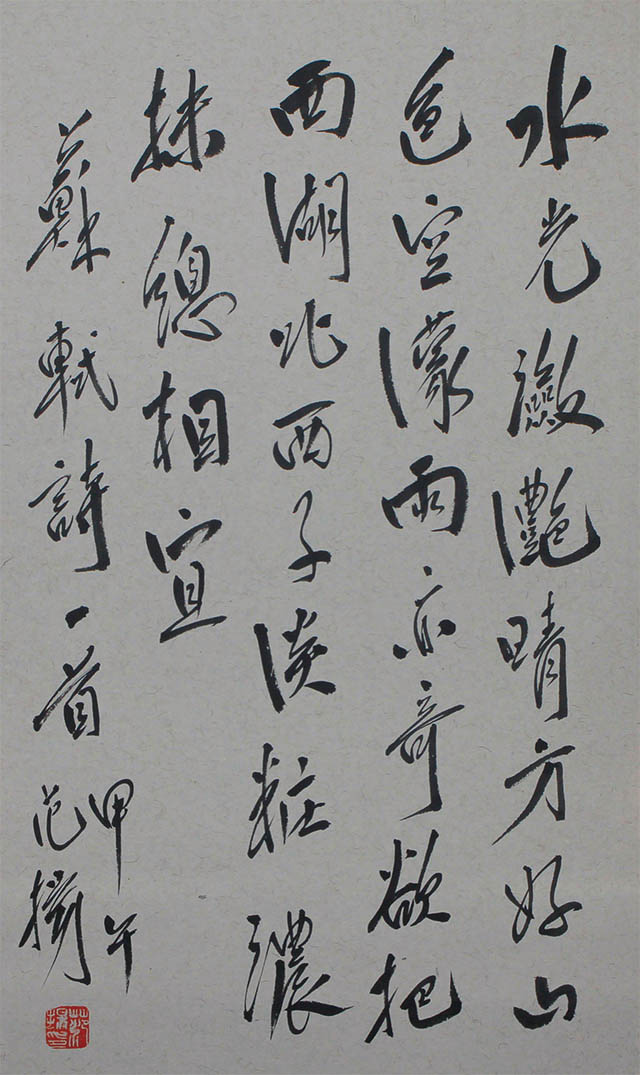 水光瀲灧晴方好山
色空濛雨亦奇欲把
西湖比西子淡粧濃
抹總相宜
蘇軾詩一首
甲午
范